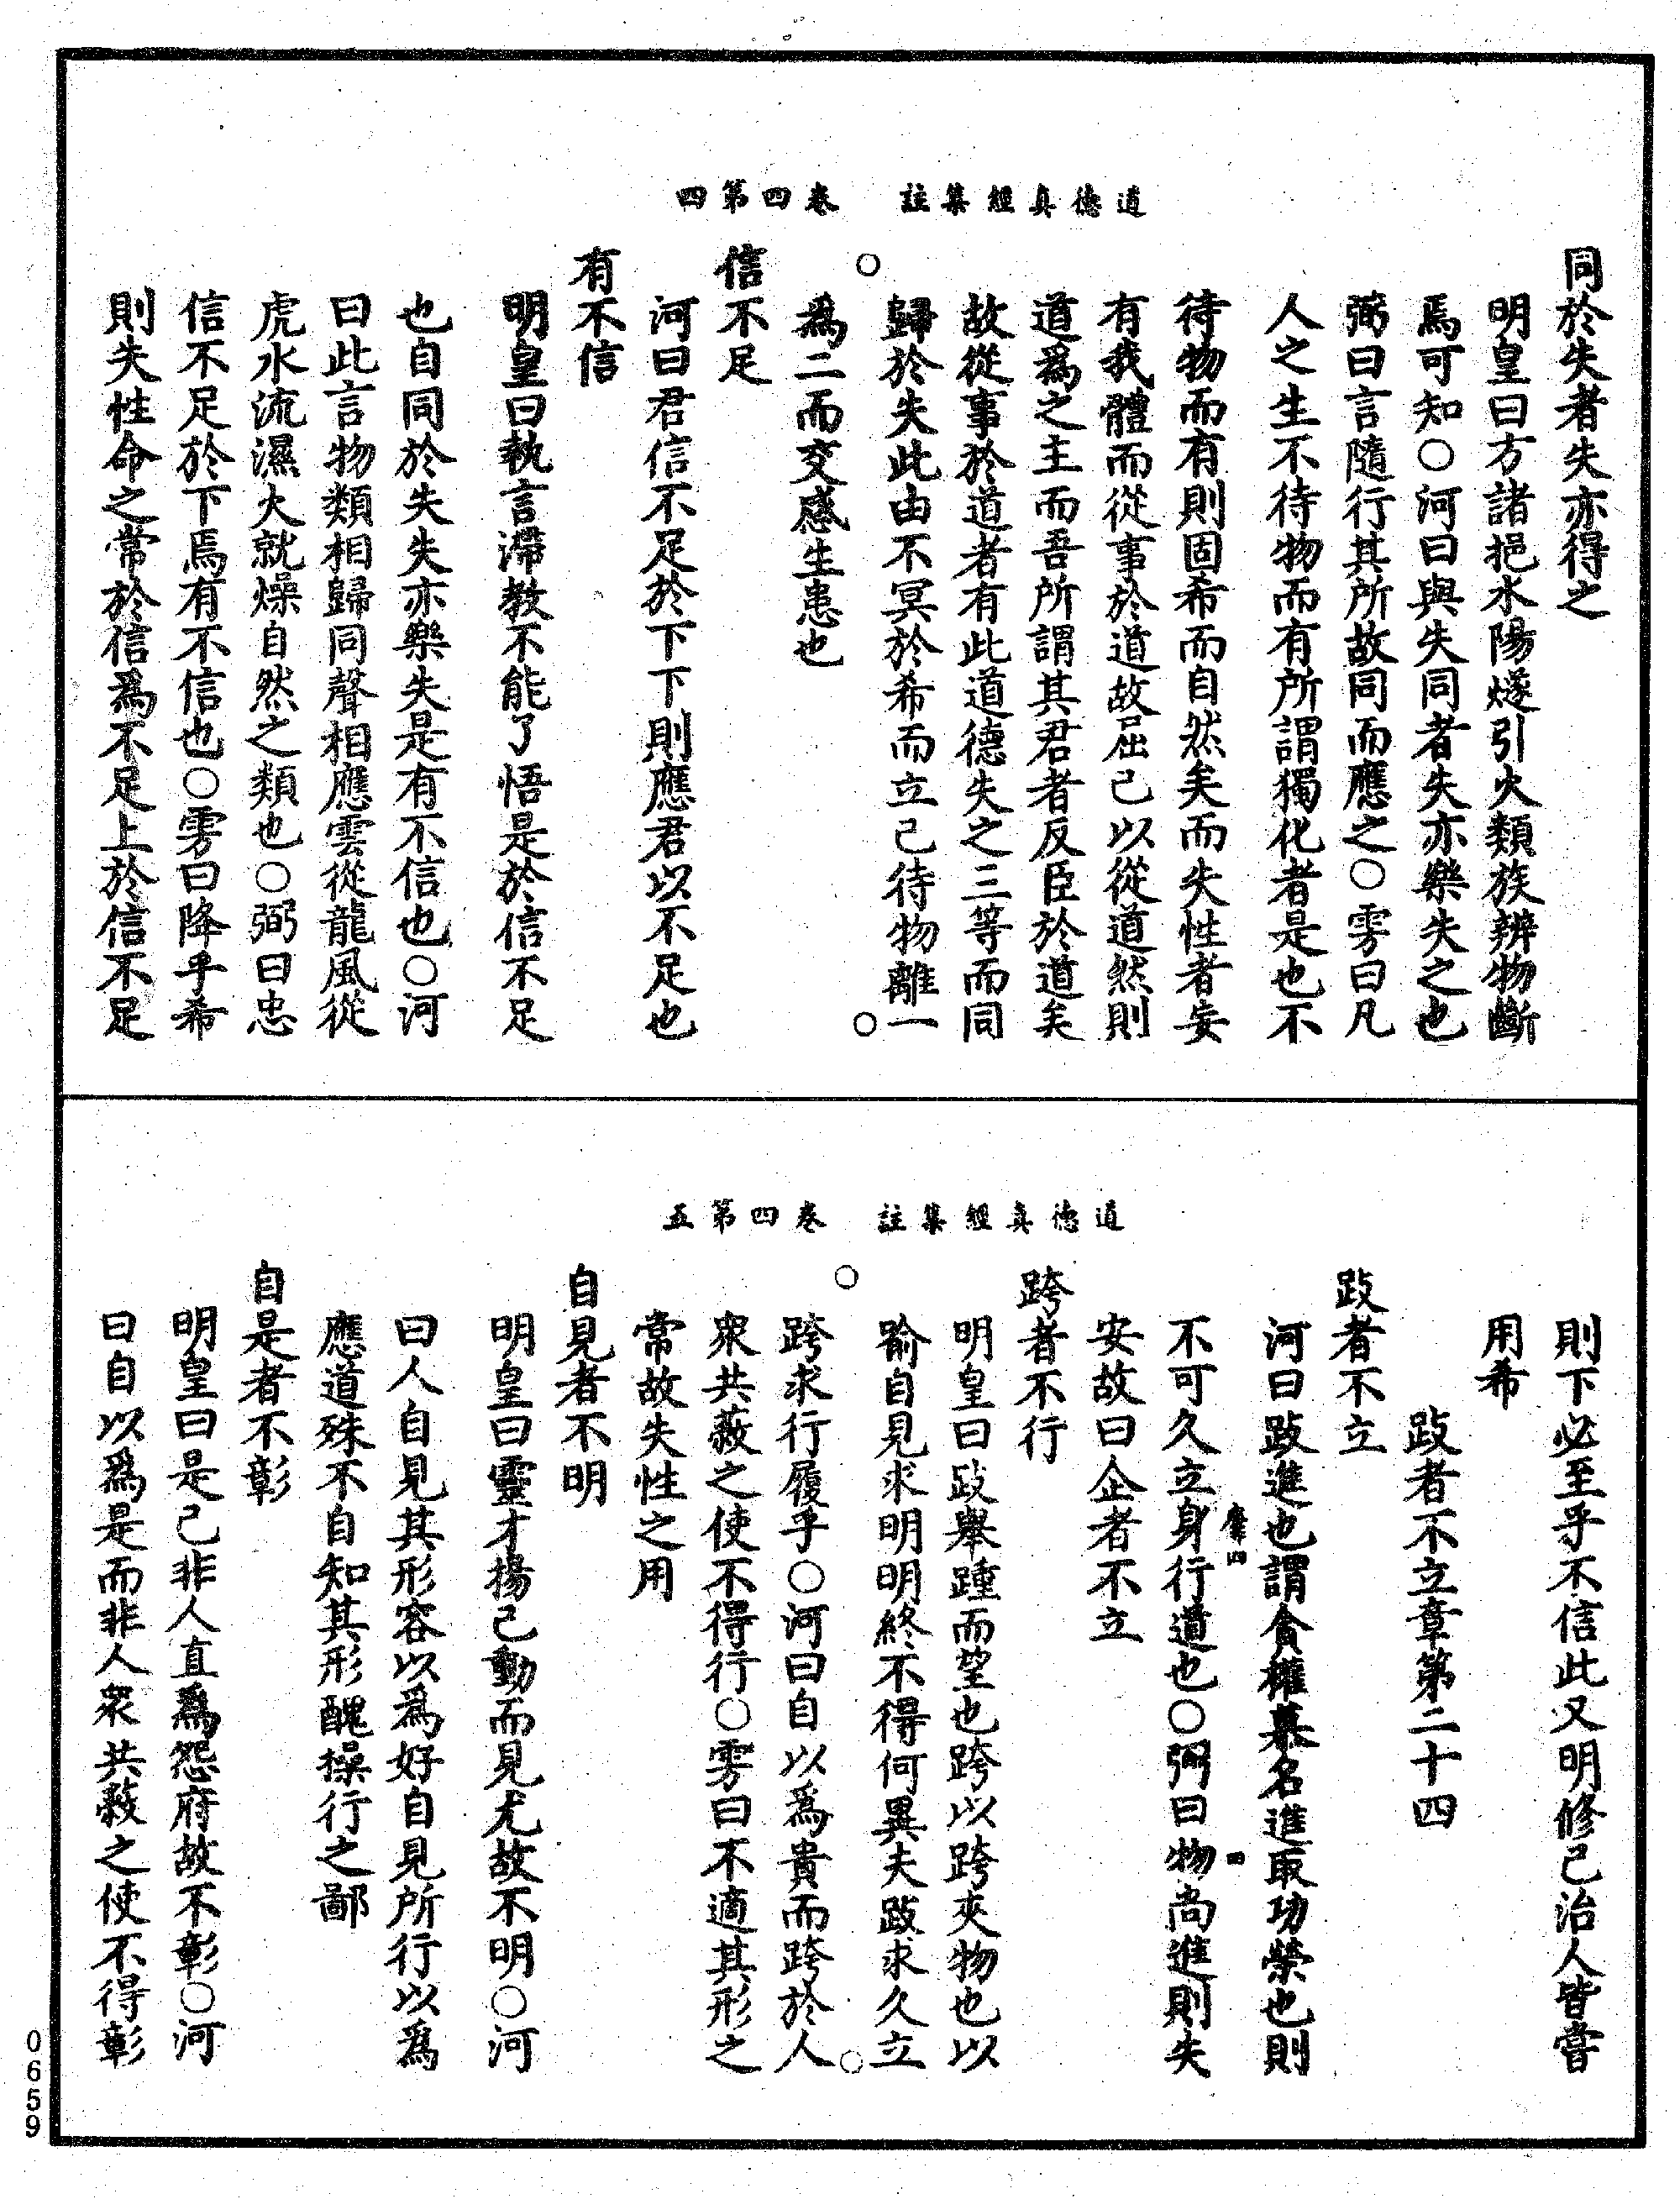 道德真經集註　卷四第四
同於失者失亦得之
明皇曰方諸挹水陽燧引火類族辨物斷
焉可知○河曰與失同者失亦樂失之也
弼曰言隨行其所故同而應之○雱曰凡
人之生不待物而有所謂獨化者是也不
待物而有則固希而自然矣而失性者妄
有我體而從事於道故屈己以從道然則
道爲之主而吾所謂其君者反臣於道矣
故從事於道者有此道德失之三等而同
歸於失此由不冥於希而立己待物離一
爲二而交感生患也
信不足
河曰君信不足於下下則應君以不足也
有不信
明皇曰執言滯教不能了悟是於信不足
也自同於失失亦樂失是有不信也○河
曰此言物類相歸同聲相應雲從龍風從
虎水流濕火就燥自然之類也○弼曰忠
信不足於下焉有不信也○雱曰降乎希
則失性命之常於信爲不足上於信不足
道德真經集註　卷四第五
則下必至乎不信此又明修己治人皆當
用希
跂者不立章第二十四
跂者不立
河曰跂進也謂貪權慕名進取功榮也則
不可久立身行道也○弼曰物尚進則失
安故曰企者不立
跨者不行
明皇曰跂舉踵而望也跨以跨夾物也以
喻自見求明明終不得何異夫跂求久立
跨求行履乎○河曰自以爲貴而跨於人
衆共蔽之使不得行○雱曰不適其形之
常故失性之用
自見者不明
明皇曰露才揚己動而見尤故不明○河
曰人自見其形容以爲好自見所行以爲
應道殊不自知其形醜操行之鄙
自是者不彰
明皇曰是己非人直爲怨府故不彰○河
曰自以爲是而非人衆共蔽之使不得彰
0659